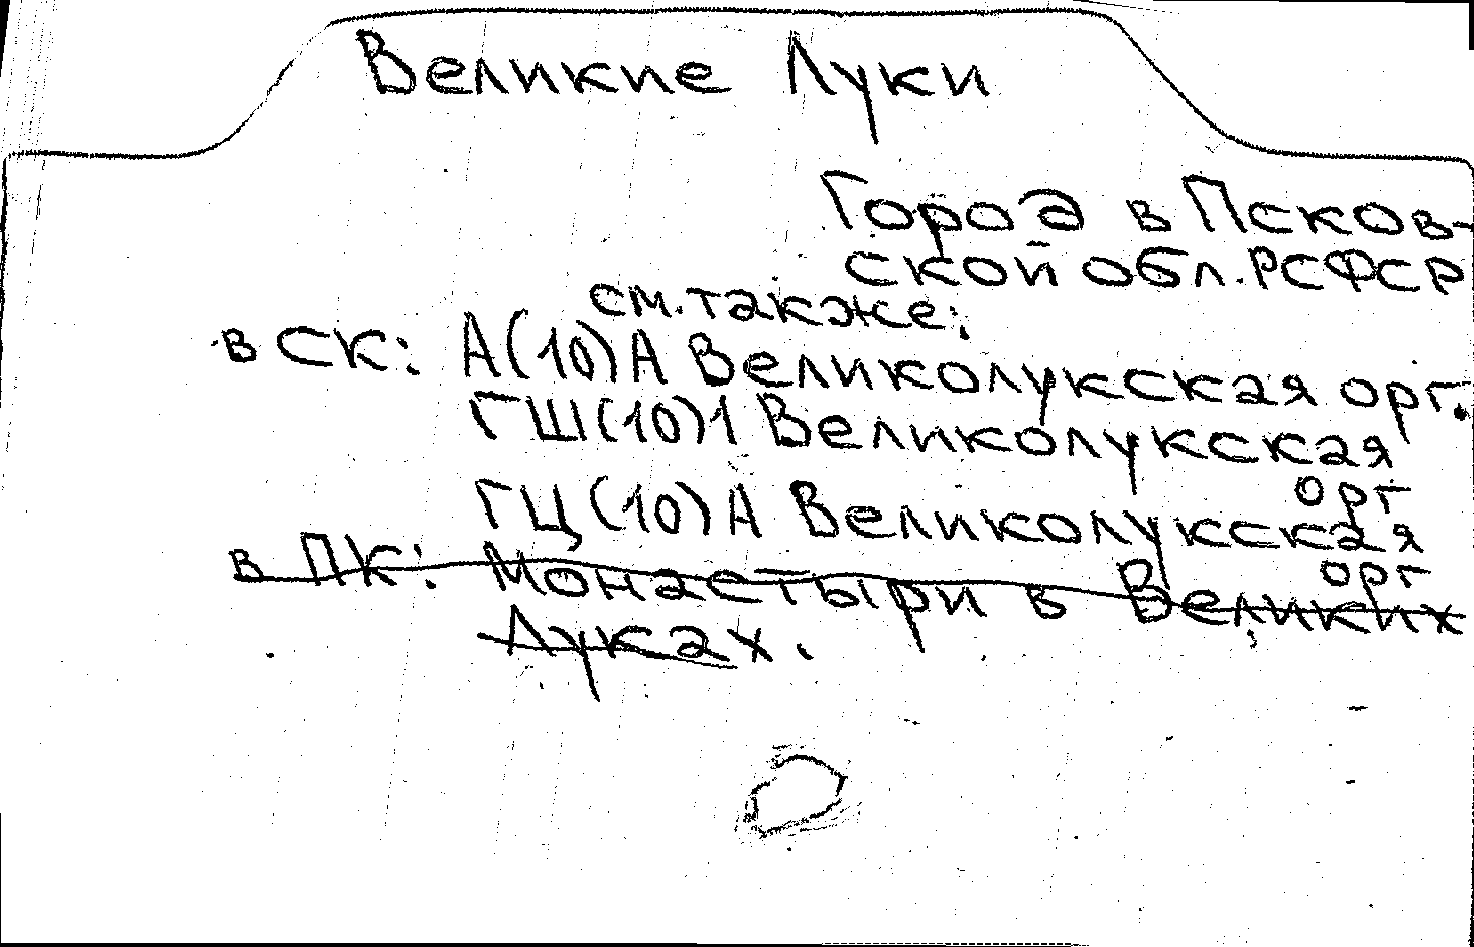 Великие Луки
Город в Псков-
ской обл. РСФСР
см. также:
в СК: А(10)А Великолукская орг.
ГШ(10)1 Великолукская
орг
ГЦ(10)А Великолукская
орг
в ПК: Монастыри в Великих
Луках.